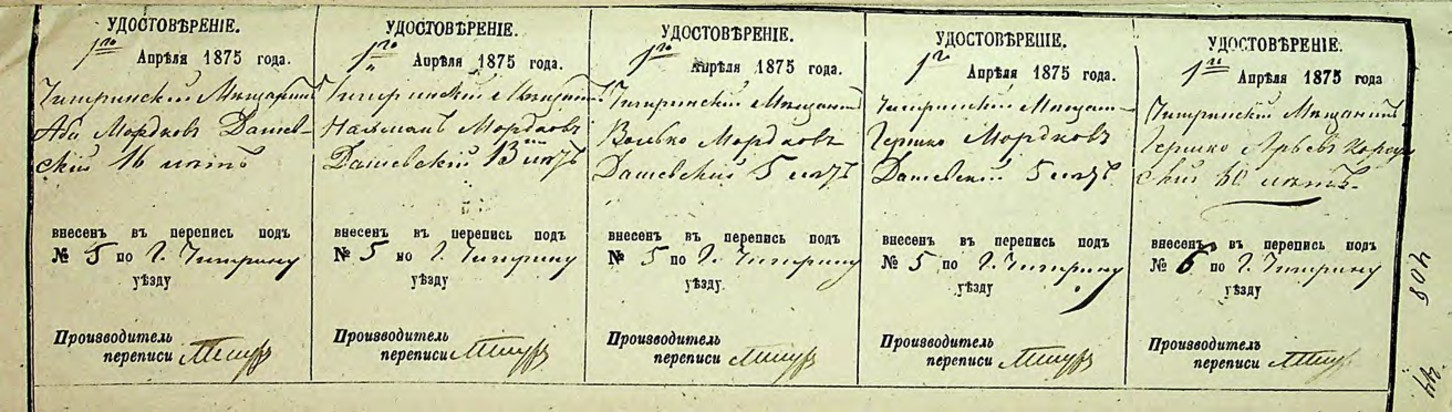 УДОСТОВѢРЕНІЕ.
1го Апрѣля 1875 года.
Чигиринскій Мѣщанинъ
Аба Мордковъ Дашев-
скій 16 лѣтъ
внесенъ въ перепись подъ
№ 5 по г. Чигирину
уѣзду
Производитель
переписи
УДОСТОВѢРЕНІЕ.
1го Апрѣля 1875 года.
Чигиринскій Мѣщанинъ
Нахманъ Мордковъ
Дашевскій 13 лѣтъ
внесенъ въ перепись подъ
№ 5 по г. Чигирину
уѣзду
Производитель
переписи
УДОСТОВѢРЕНІЕ.
1го Апрѣля 1875 года.
Чигиринскій Мѣщанинъ
Волько Мордковъ
Дашевскій 5 лѣтъ
внесенъ въ перепись подъ
№ 5 по г. Чигирину
уѣзду.
Производитель
переписи
УДОСТОВѢРЕНІЕ.
1го Апрѣля 1875 года.
Чигиринскій Мѣщан-
Гершко Мордковъ
Дашевскій 5 лѣтъ
внесенъ въ перепись подъ
№ 5 по г. Чигирину
уѣзду
Производитель
переписи
УДОСТОВѢРЕНІЕ.
1го Апрѣля 1875 года
Чигиринскій Мѣщанинъ
Гершко Арьевъ
скій лѣтъ
внесенъ въ перепись подъ
№ 6 по г. Чигирину
уѣзду
Производитель
переписи
408